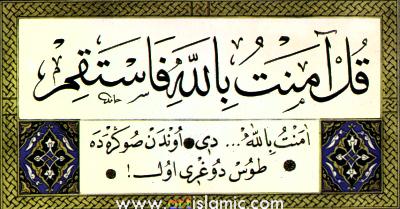 قُلْ آمَنْتُ بِاللّٰهِ فَاسْتَقِمْ
اٰمَنْتُ بِاللّٰهِ... دى، اوندن صوڭره ده
طوس دوغرى اول!
www.artislamic.com